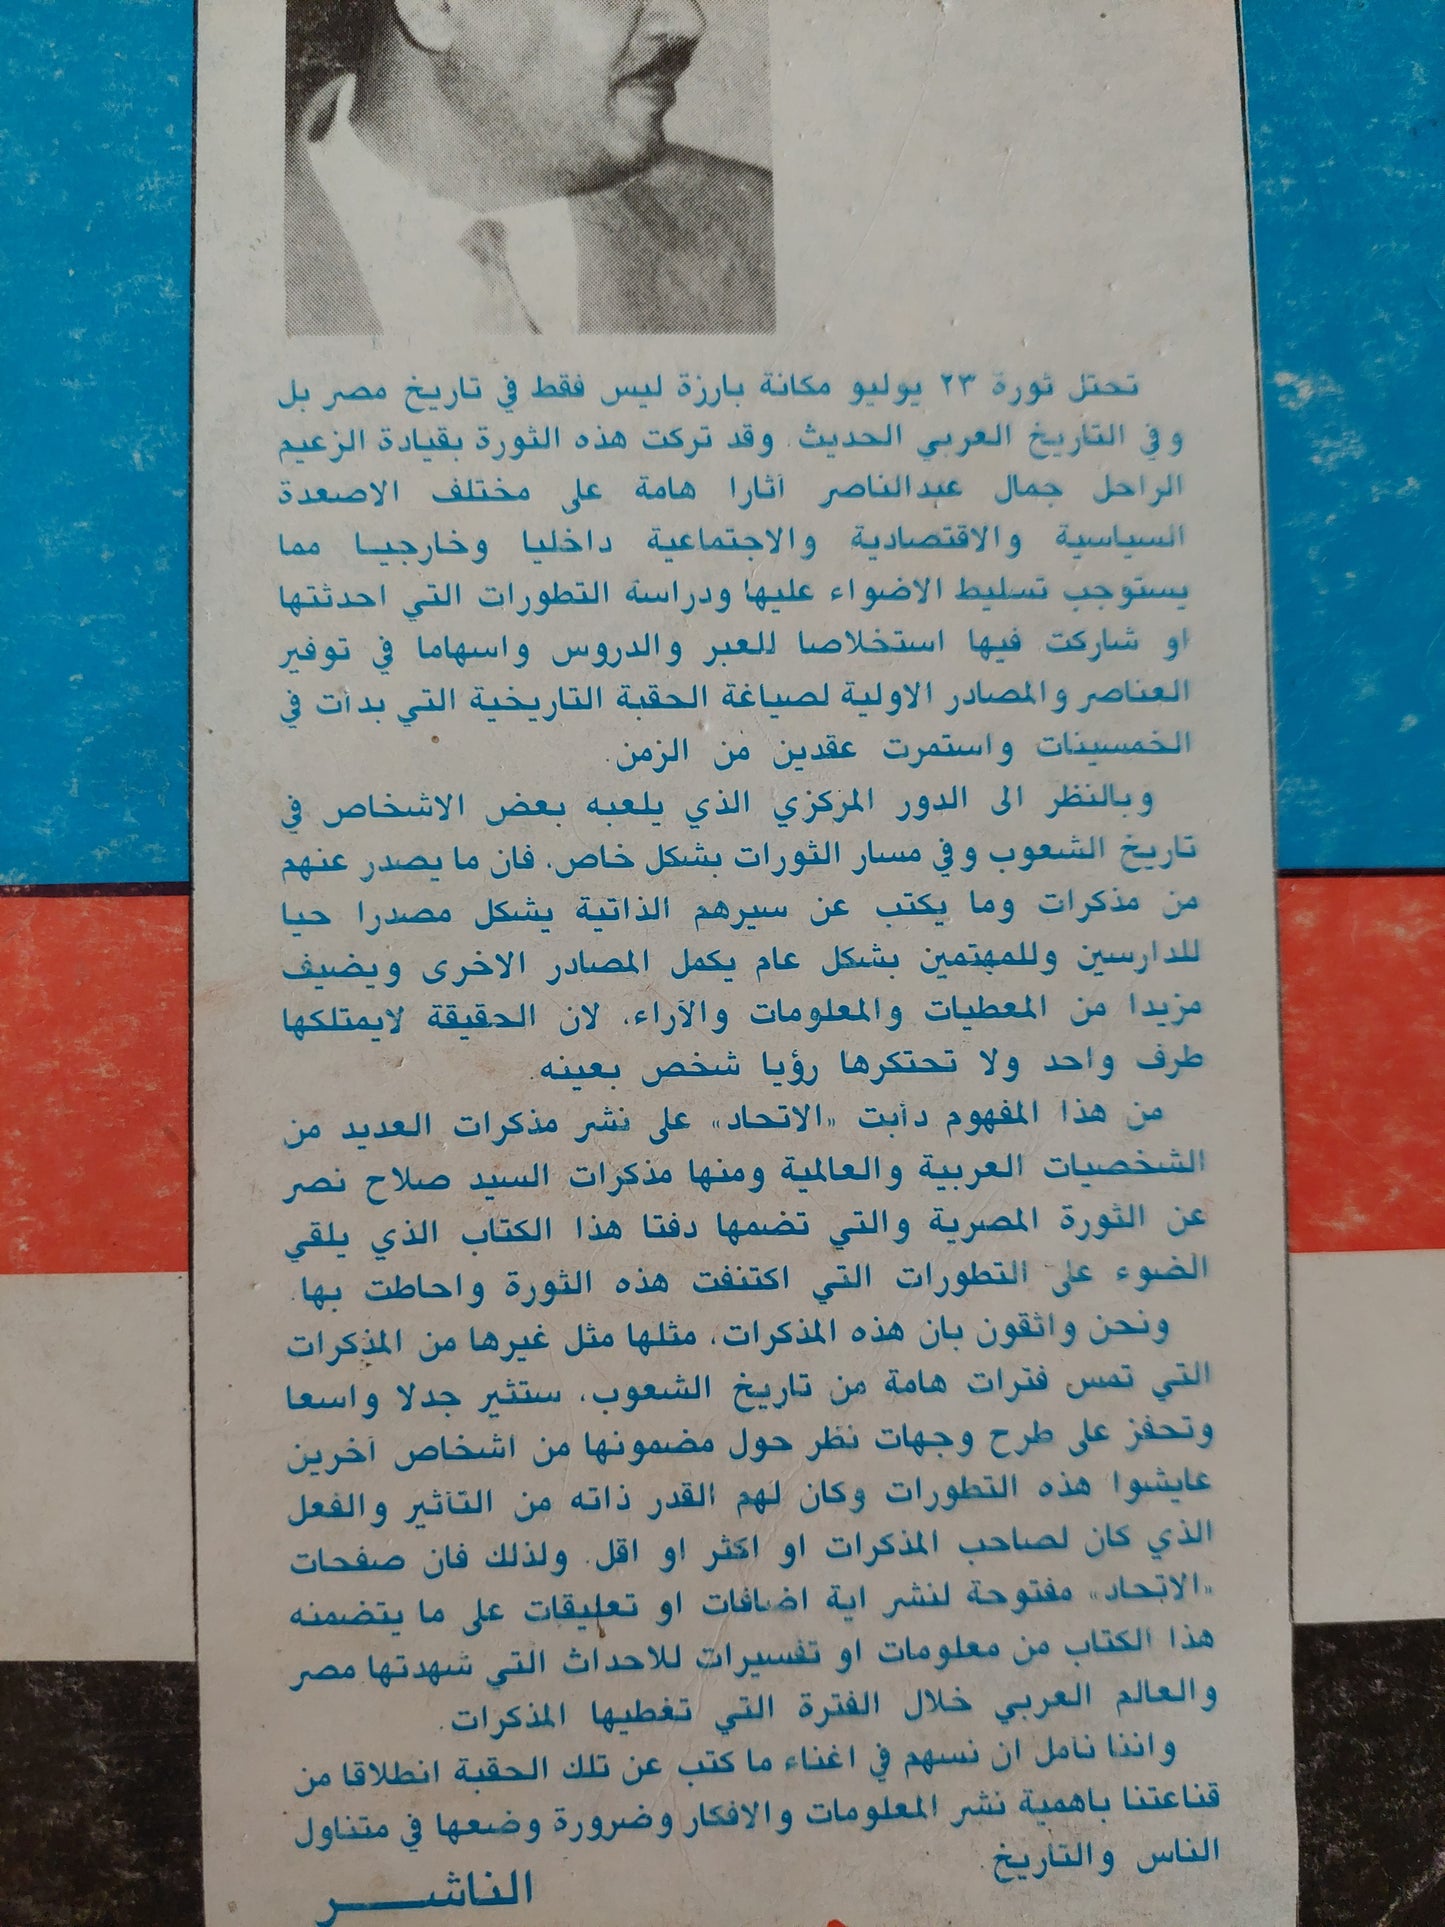 تحتل ثورة ٢٣ يوليو مكانة بارزة ليس فقط في تاريخ مصر بل
وفي التاريخ العربي الحديث. وقد تركت هذه الثورة بقيادة الزعيم
الراحل جمال عبدالناصر آثارا هامة على مختلف الاصعدة
السياسية والاقتصادية والاجتماعية داخليا وخارجيا مما
يستوجب تسليط الاضواء عليها ودراسة التطورات التي احدثتها
او شاركت فيها استخلاصا للعبر والدروس واسهاما في توفير
العناصر والمصادر الاولية لصياغة الحقبة التاريخية التي بدأت في
الخمسينات واستمرت عقدين من الزمن.
وبالنظر الى الدور المركزي الذي يلعبه بعض الاشخاص في
تاريخ الشعوب وفي مسار الثورات بشكل خاص، فان ما يصدر عنهم
من مذكرات وما يكتب عن سيرهم الذاتية يشكل مصدرا حيا
للدارسين وللمهتمين بشكل عام يكمل المصادر الاخرى ويضيف
مزيدا من المعطيات والمعلومات والآراء، لان الحقيقة لايمتلكها
طرف واحد ولا تحتكرها رؤيا شخص بعينه.
من هذا المفهوم دأبت «الاتحاد» على نشر مذكرات العديد من
الشخصيات العربية والعالمية ومنها مذكرات السيد صلاح نصر
عن الثورة المصرية والتي تضمها دفتا هذا الكتاب الذي يلقي
الضوء على التطورات التي اكتنفت هذه الثورة واحاطت بها.
ونحن واثقون بان هذه المذكرات، مثلها مثل غيرها من المذكرات
التي تمس فترات هامة من تاريخ الشعوب، ستثير جدلا واسعا
وتحفز على طرح وجهات نظر حول مضمونها من اشخاص آخرين
عايشوا هذه التطورات وكان لهم القدر ذاته من التأثير والفعل
الذي كان لصاحب المذكرات او اكثر او اقل. ولذلك فان صفحات
«الاتحاد» مفتوحة لنشر اية اضافات او تعليقات على ما يتضمنه
هذا الكتاب من معلومات او تفسيرات للاحداث التي شهدتها مصر
والعالم العربي خلال الفترة التي تغطيها المذكرات.
واننا نأمل ان نسهم في اغناء ما كتب عن تلك الحقبة انطلاقا من
قناعتنا باهمية نشر المعلومات والافكار وضرورة وضعها في متناول
الناس والتاريخ.
الناشـــــر